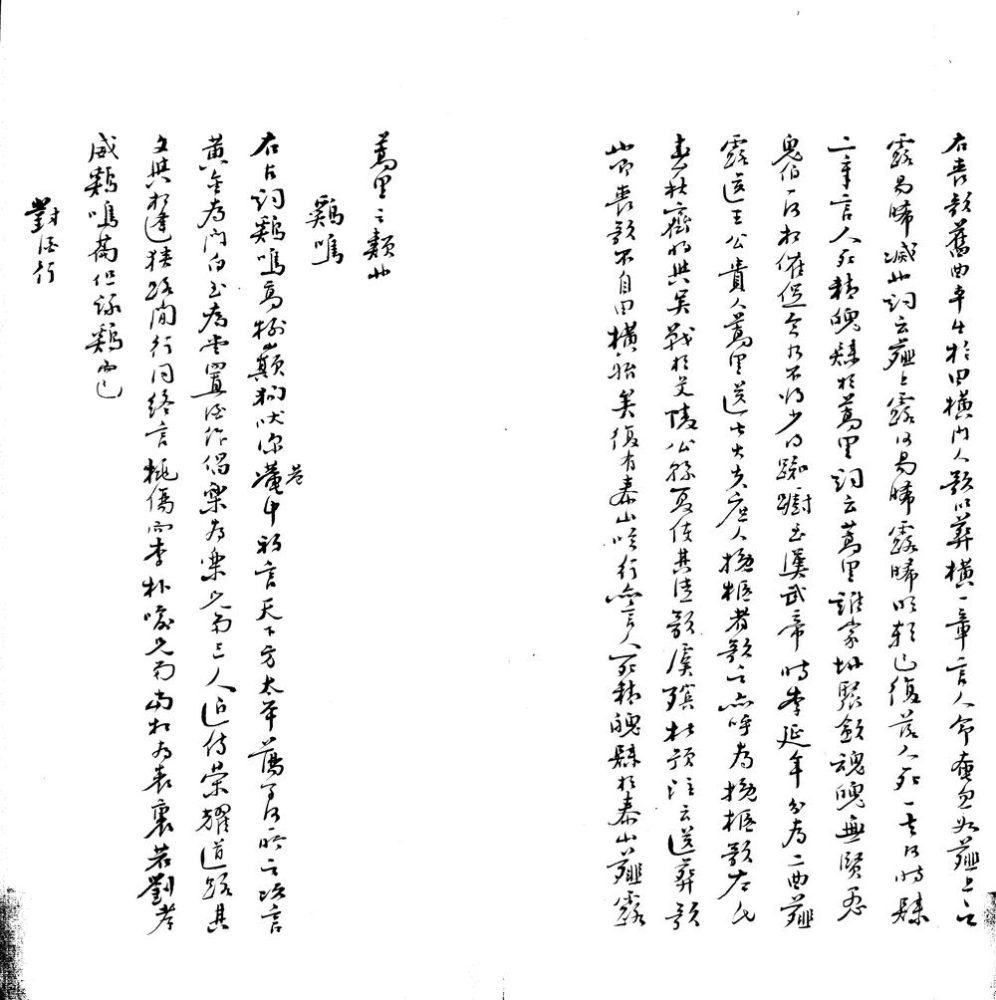 右喪歌舊曲本出於田橫門人歌以葬橫一章言人命奄忽如薤上之
露易晞滅也詞云薤上露何易晞露晞明朝已復落人死一去何時歸
二章言人死精魄歸於蒿里詞云蒿里誰家地聚斂魂魄無賢愚
鬼伯一何相催促今乃不得少踟躕至漢武帝時李延年分為二曲薤
露送王公貴人蒿里送士大夫庶人挽柩者歌之亦呼為挽柩歌左氏
春秋齊將與吳戰於艾陵公孫夏使其徒歌虞殯杜預注云送葬歌
也即喪歌不自田橫始矣復有泰山吟行亦言人死精魄歸於泰山薤露
蒿里之類也
雞鳴
右古詞雞鳴高樹巔狗吠深宮中初言天下方太平蕩子何所之次言
黃金為門白玉為堂置酒作倡樂為樂兄弟三人近侍榮耀道路與
文與相逢狹路間行同終言桃傷而李朴喻兄弟當相為表裏若劉孝
威雞鳴篇但詠雞而已
對酒行